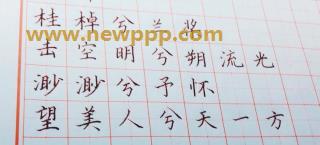 桂棹兮兰桨
www.newppp.com
击空明兮朔流光
渺渺兮予怀
望美人兮天一方